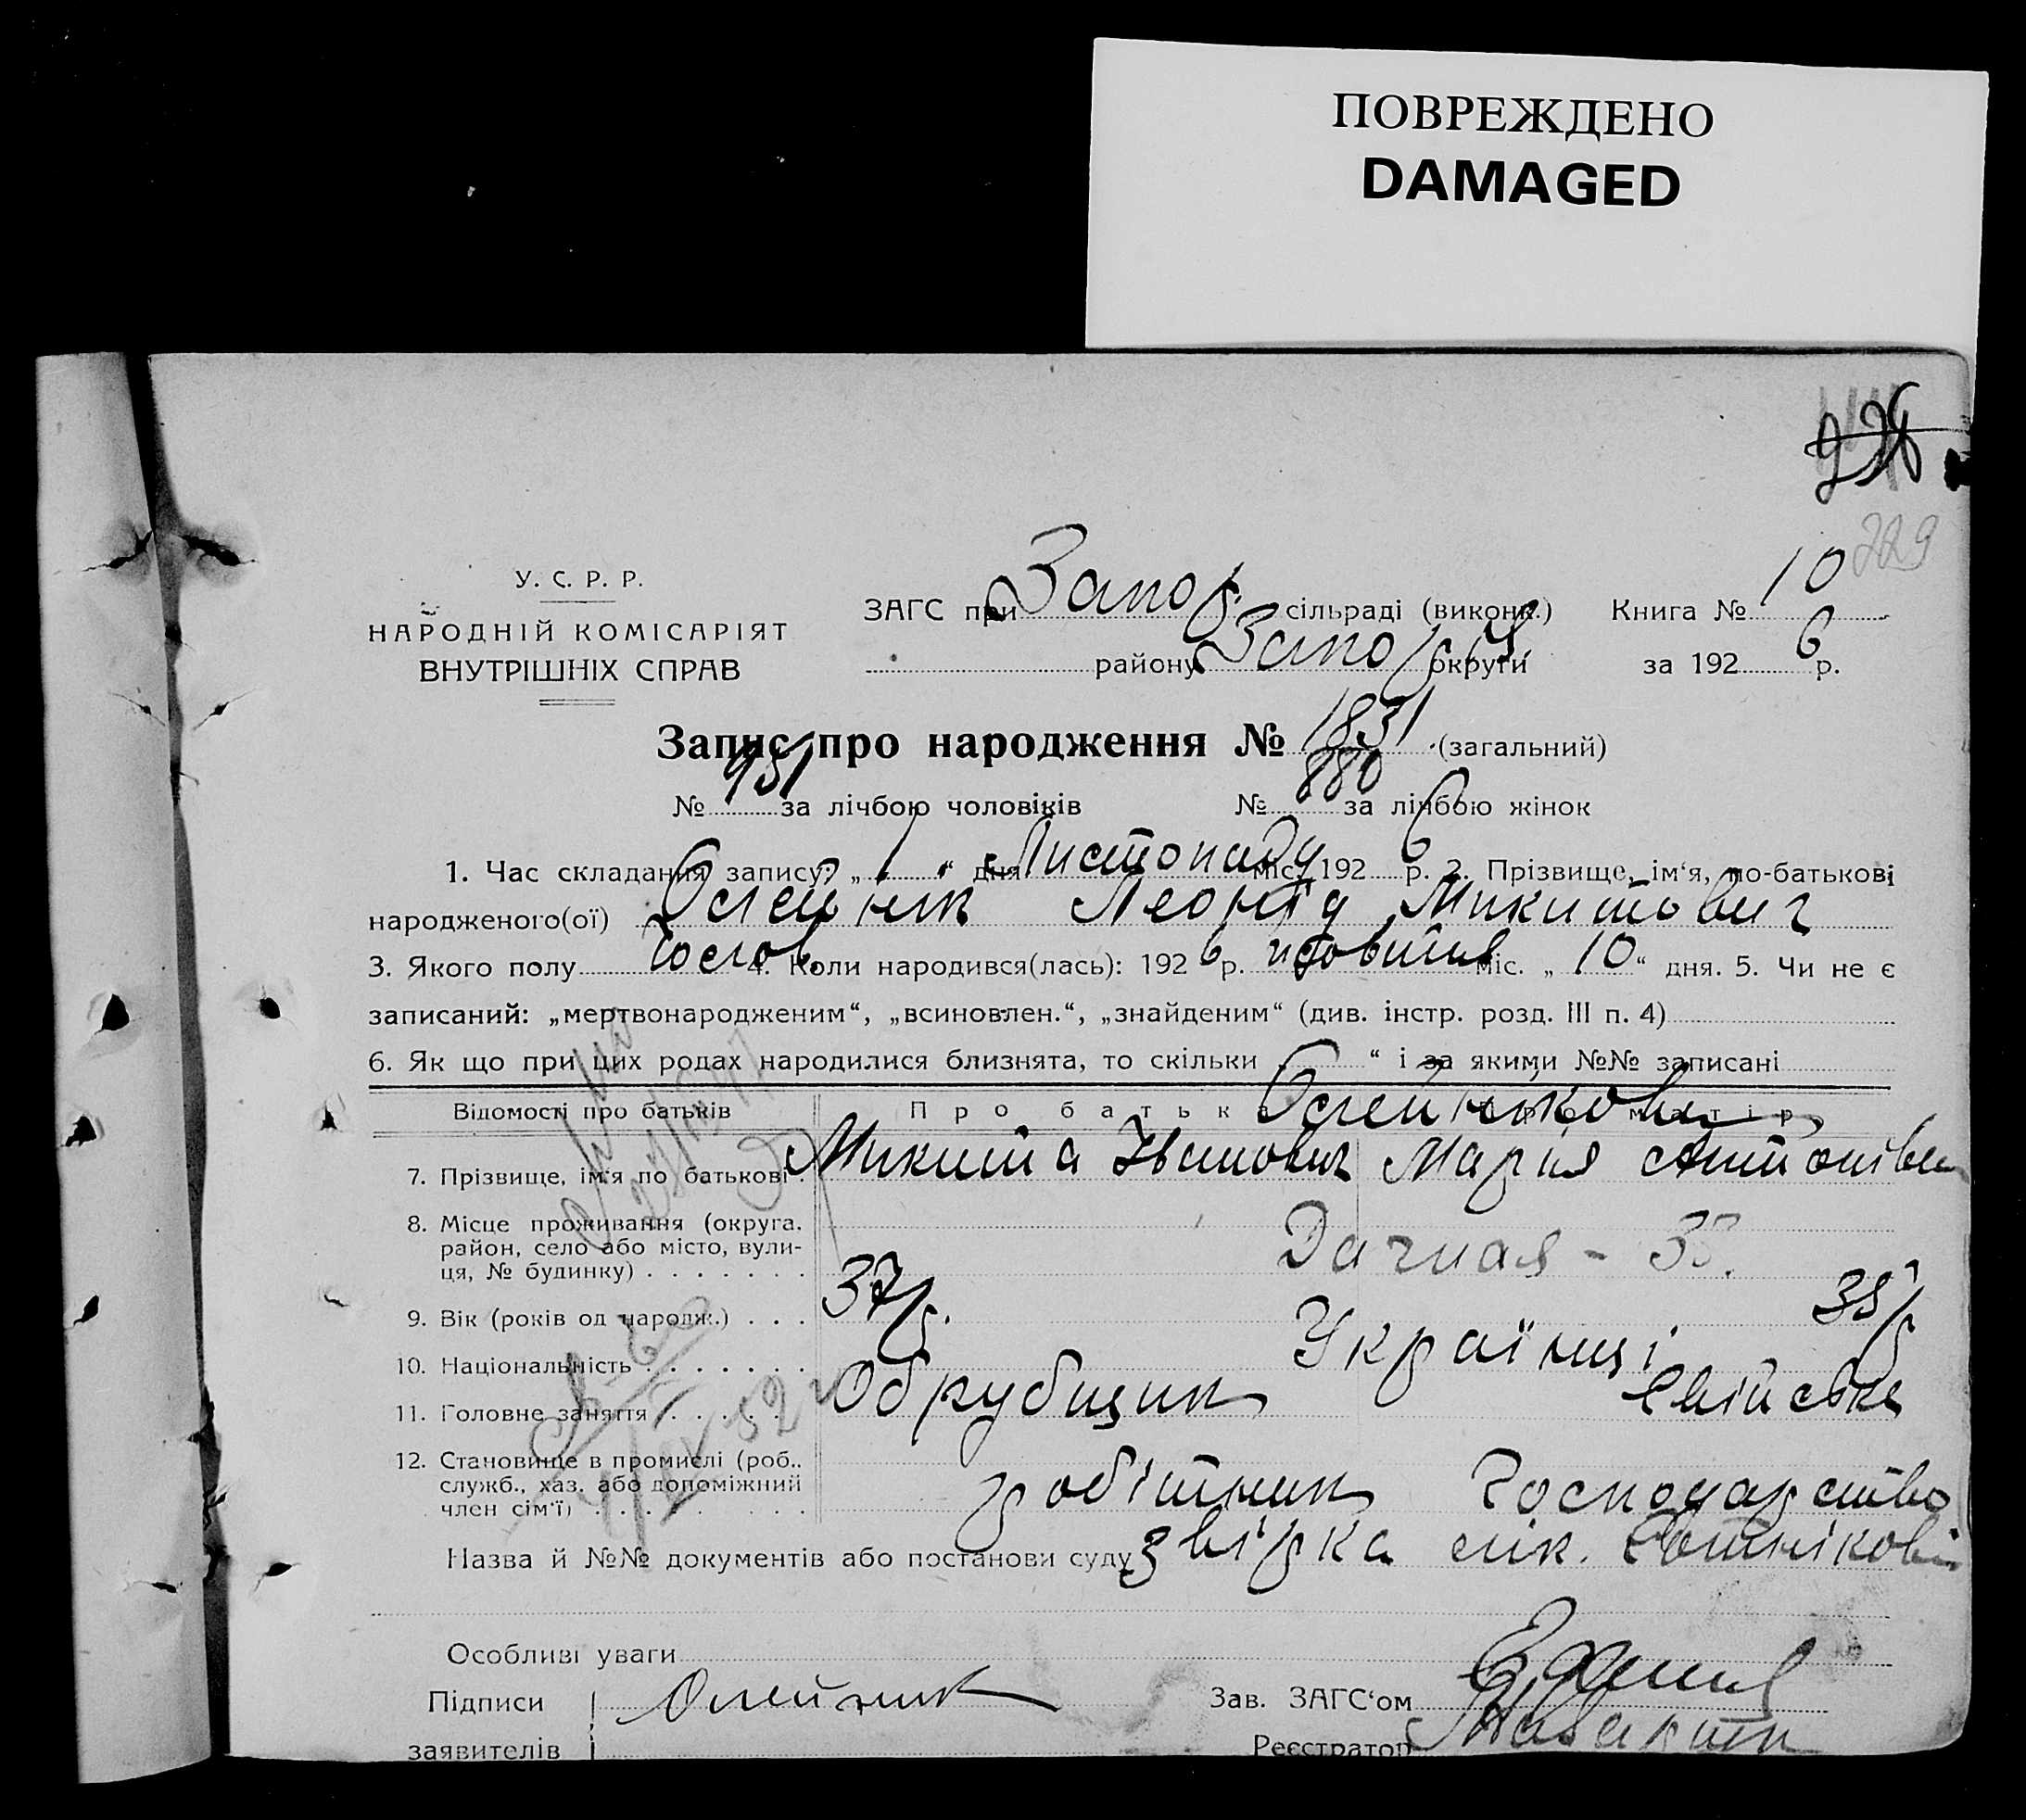 ПОВРЕЖДЕНО
DAMAGED
229
У. С. Р. Р.
НАРОДНІЙ КОМІСАРІЯТ
ВНУТРІШНІХ СПРАВ
ЗАГС при Запор. сільраді (виконк.) Книга № 10
району Запор округи за 1926 р.
Запис про народження № 1831 (загальний)
№ 951 за лічбою чоловіків № 880 за лічбою жінок
1. Час складання запису: „ 1 “ дня Листопаду міс. 1926 р. 2. Прізвище, ім‘я, по-батькові
народженого(ої) Олейник Леонід Микитович
3. Якого полу чолов. 4. Коли народився(лась): 1926 р. жовтня міс. „ 10 “ дня. 5. Чи не є
записаний: „мертвонародженим“, „всиновлен.“, „знайденим“ (див. інстр. розд. III п. 4)
6. Як що при цих родах народилися близнята, то скільки „ “ і за якими №№ записані
Відомості про батьків Про батька Про матір
Олейникови
7. Прізвище, ім‘я по батькові Микита Іванович Марія Антонівна
8. Місце проживання (округа, район, село або місто, вули-
ця, № будинку) Дачная -
9. Вік (років од народж.) 37 р. 35 р
10. Національність Українці
11. Головне заняття Обрубщик Свійське
12. Становище в промислі (роб.,
служб., хаз. або допоміжний
член сім‘ї) робітник Господарство
Назва й №№ документів або постанови суду звірка лік.
Особливі уваги
Підписи Олейник Зав. ЗАГС‘ом
заявителів Реєстратор